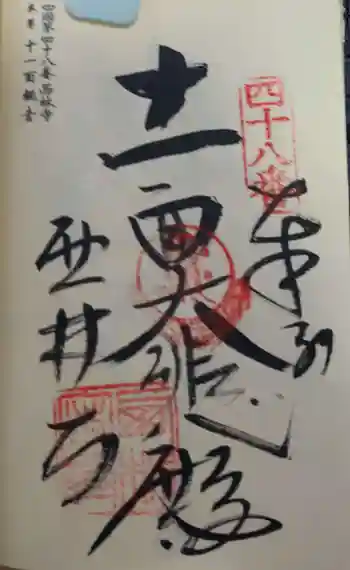 四國第四十八番西林寺
本尊十一面觀音
四十八番
奉納
十一面大悲殿
西林寺